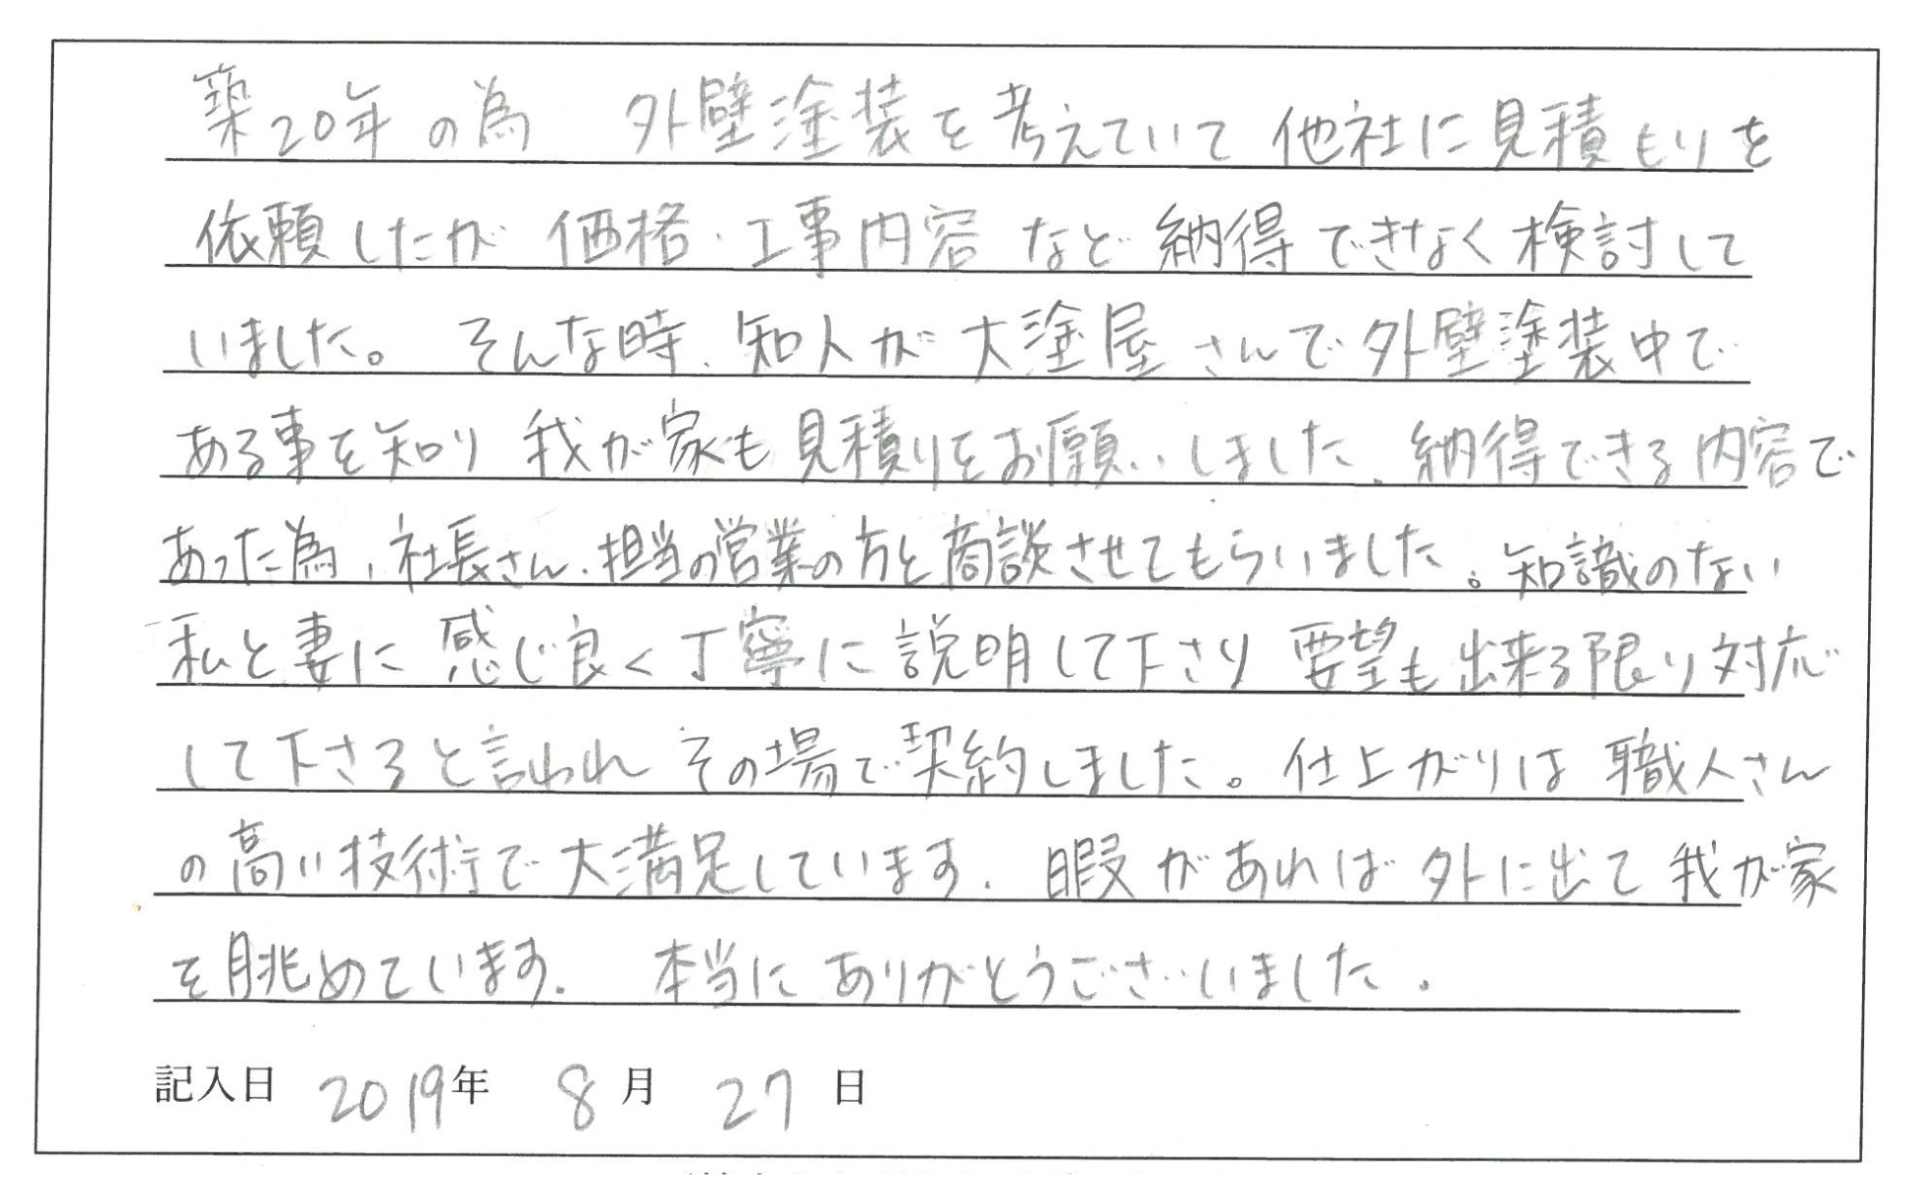 築20年の為　外壁塗装を考えていて 他社に見積もりを
依頼したが 価格・工事内容 など 納得できなく検討して
いました。 そんな時、知人が 大塗屋さんで外壁塗装中で
ある事を知り 我が家も見積りをお願いしました、納得できる内容で
あった為、社長さん、担当の営業の方と商談させてもらいました。知識のない
私と妻に 感じ良く丁寧に説明して下さり 要望も出来る限り対応
して下さると言われ その場で契約しました。仕上がりは 職人さん
の高い技術で大満足しています. 暇があれば外に出て 我が家
を眺めています. 本当に ありがとうございました.
記入日 2019年 8月 27日